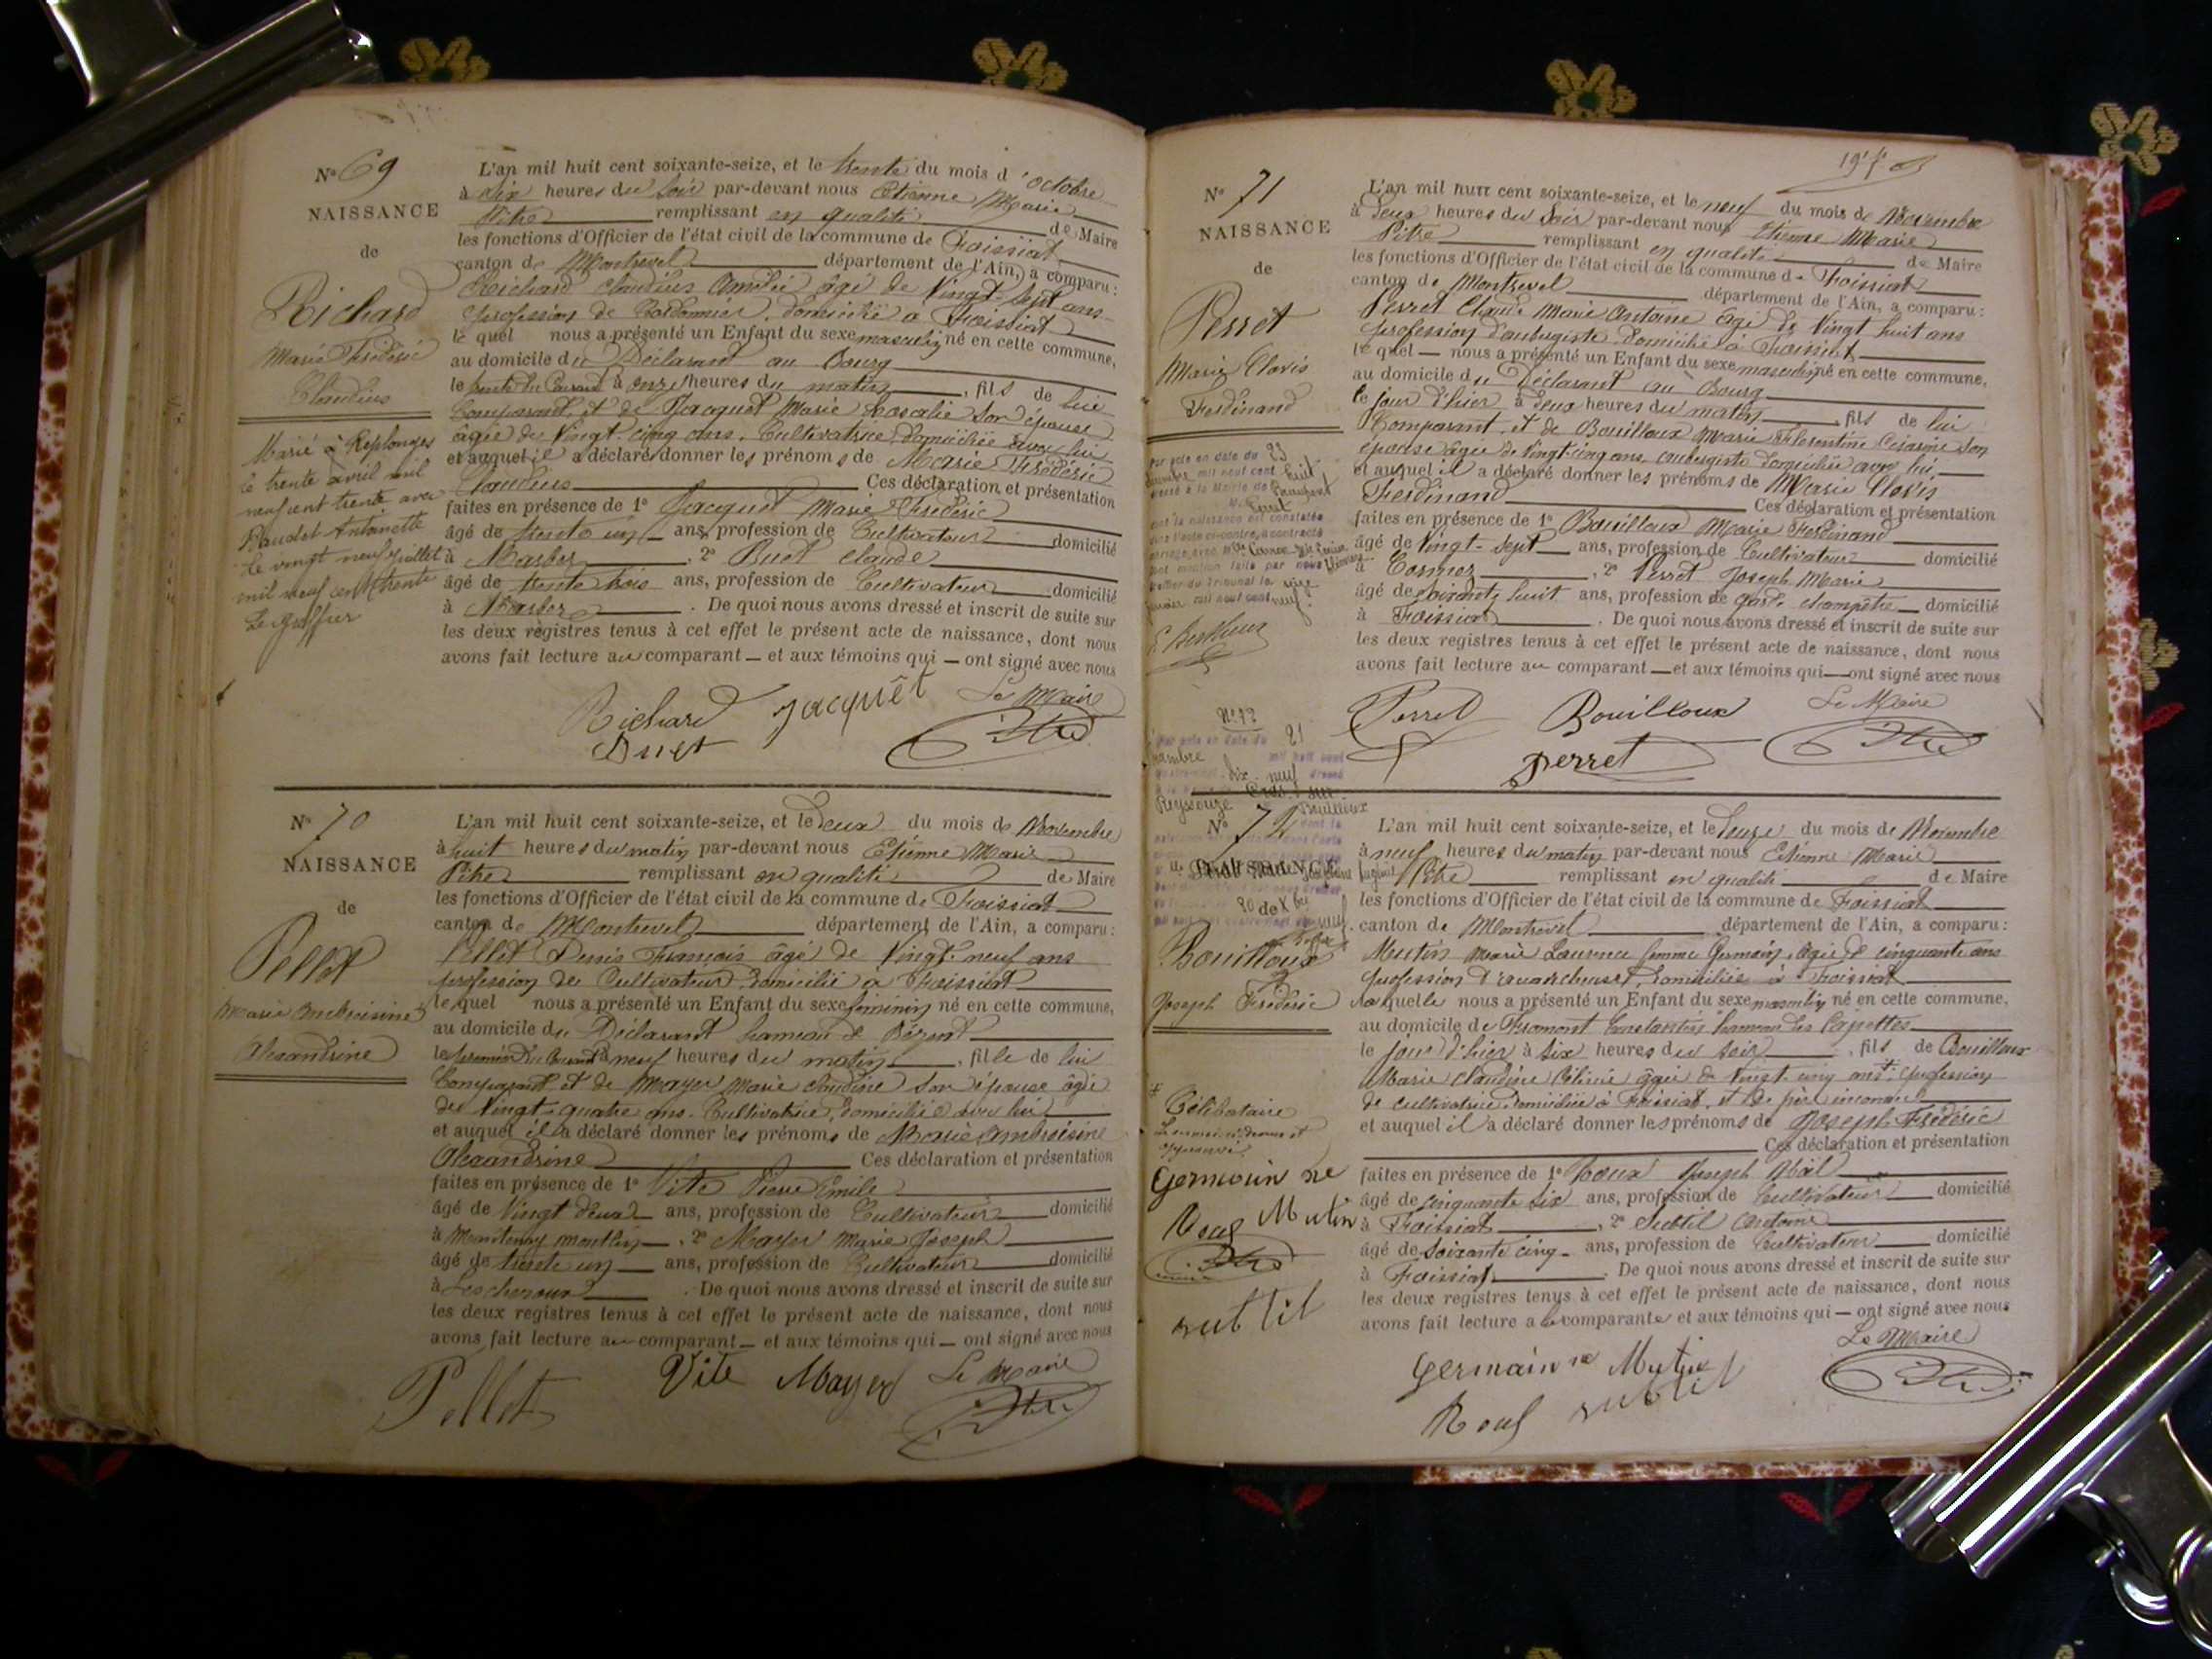 N° 69
NAISSANCE
de
Richard
Marie Frédéric
Claudius
Marié à Replonges
le trente avril mil
neuf cent trente avec
Baudet Antoinette
le vingt neuf juillet
mil neuf cent trente
Le greffier
L'an mil huit cent soixante-seize, et le trente du mois d'octobre
à six heures du soir par-devant nous Etienne Marie
Pitre remplissant en qualité de Maire
les fonctions d'Officier de l'état civil de la commune de Foissiat
canton de Montrevel département de l'Ain, a comparu:
Richard Claudius Amédée âgé de Vingt-sept ans
profession de Cordonnier, domicilié à Foissiat
le quel nous a présenté un Enfant du sexe masculin né en cette commune,
au domicile du Déclarant au Bourg
le trente du Courant à onze heures du matin, fils de lui
Comparant, et de Jacquet Marie Rosalie son épouse
âgée de Vingt-cinq ans, Cultivatrice, domiciliée avec lui
et auquel il a déclaré donner les prénoms de Marie Frédéric
Claudius Ces déclaration et présentation
faites en présence de 1° Jacquet Marie Frédéric
âgé de trente un ans, profession de Cultivateur domicilié
à Marboz, 2° Buet Claude
âgé de trente trois ans, profession de Cultivateur domicilié
à Marboz. De quoi nous avons dressé et inscrit de suite sur
les deux registres tenus à cet effet le présent acte de naissance, dont nous
avons fait lecture au comparant — et aux témoins qui — ont signé avec nous
Richard Jacquêt Le Maire
Buet Pitre
N° 70
NAISSANCE
de
Pellet
Marie Ambroisine
Alexandrine
L'an mil huit cent soixante-seize, et le deux du mois de Novembre
à huit heures du matin par-devant nous Etienne Marie
Pitre remplissant en qualité de Maire
les fonctions d'Officier de l'état civil de la commune de Foissiat
canton de Montrevel département de l'Ain, a comparu:
Pellet Denis François âgé de Vingt-neuf ans
profession de Cultivateur domicilié à Foissiat
le quel nous a présenté un Enfant du sexe féminin né en cette commune,
au domicile du Déclarant hameau de
le premier du Courant à neuf heures du matin, fille de lui
Comparant et de Mayer Marie Claudine son épouse âgée
de Vingt-quatre ans, Cultivatrice, domiciliée avec lui
et auquel il a déclaré donner les prénoms de Marie Ambroisine
Alexandrine Ces déclaration et présentation
faites en présence de 1° Vite Pierre Emile
âgé de Vingt deux ans, profession de Cultivateur domicilié
à Mantenay montlin, 2° Mayer Marie Joseph
âgé de trente un ans, profession de Cultivateur domicilié
à Lescheroux. De quoi nous avons dressé et inscrit de suite sur
les deux registres tenus à cet effet le présent acte de naissance, dont nous
avons fait lecture au comparant — et aux témoins qui — ont signé avec nous
Pellet Vite Mayer Le Maire
Pitre
N° 71
NAISSANCE
de
Perret
Marie Clovis
Ferdinand
L'an mil huit cent soixante-seize, et le neuf du mois de Novembre
à deux heures du soir par-devant nous Etienne Marie
Pitre remplissant en qualité de Maire
les fonctions d'Officier de l'état civil de la commune de Foissiat
canton de Montrevel département de l'Ain, a comparu:
Perret Claude Marie Antoine âgé de Vingt huit ans
profession d'aubergiste domicilié à Foissiat
le quel — nous a présenté un Enfant du sexe masculin né en cette commune,
au domicile du Déclarant au Bourg
le jour d'hier à deux heures du matin, fils de lui
Comparant et de Bouilloux Marie Florentine Césarine son
épouse âgée de Vingt-cinq ans, aubergiste domiciliée avec lui
et auquel il a déclaré donner les prénoms de Marie Clovis
Ferdinand Ces déclaration et présentation
faites en présence de 1° Bouilloux Marie Ferdinand
âgé de Vingt-sept ans, profession de Cultivateur domicilié
à Cormoz, 2° Perret Joseph Marie
âgé de soixante huit ans, profession de garde champêtre domicilié
à Foissiat. De quoi nous avons dressé et inscrit de suite sur
les deux registres tenus à cet effet le présent acte de naissance, dont nous
avons fait lecture au comparant — et aux témoins qui — ont signé avec nous
Perret Bouilloux Le Maire
Perret Pitre
N° 72
NAISSANCE
Bouilloux
Joseph Frédéric
Célibataire
Germain née
Mutin
Roux
Pitre
subtil
L'an mil huit cent soixante-seize, et le douze du mois de Novembre
à neuf heures du matin par-devant nous Etienne Marie
Pitre remplissant en qualité de Maire
les fonctions d'Officier de l'état civil de la commune de Foissiat
canton de Montrevel département de l'Ain, a comparu:
Mutin Marie Laurence femme Germain, âgée de cinquante ans
profession d'accoucheuse, domiciliée à Foissiat
laquelle nous a présenté un Enfant du sexe masculin né en cette commune,
au domicile de Fromont hameau des
le jour d'hier à six heures du soir, fils de Bouilloux
Marie Claudine âgée de Vingt-cinq ans, profession
de cultivatrice domiciliée à Foissiat, et de père inconnu
et auquel il a déclaré donner les prénoms de Joseph Frédéric
Ces déclaration et présentation
faites en présence de 1° Roux Joseph
âgé de cinquante six ans, profession de Cultivateur domicilié
à Foissiat, 2° Subtil Antoine
âgé de soixante cinq ans, profession de Cultivateur domicilié
à Foissiat. De quoi nous avons dressé et inscrit de suite sur
les deux registres tenus à cet effet le présent acte de naissance, dont nous
avons fait lecture à la comparante et aux témoins qui — ont signé avec nous
Le Maire
Germain née Mutin
Roux subtil Pitre